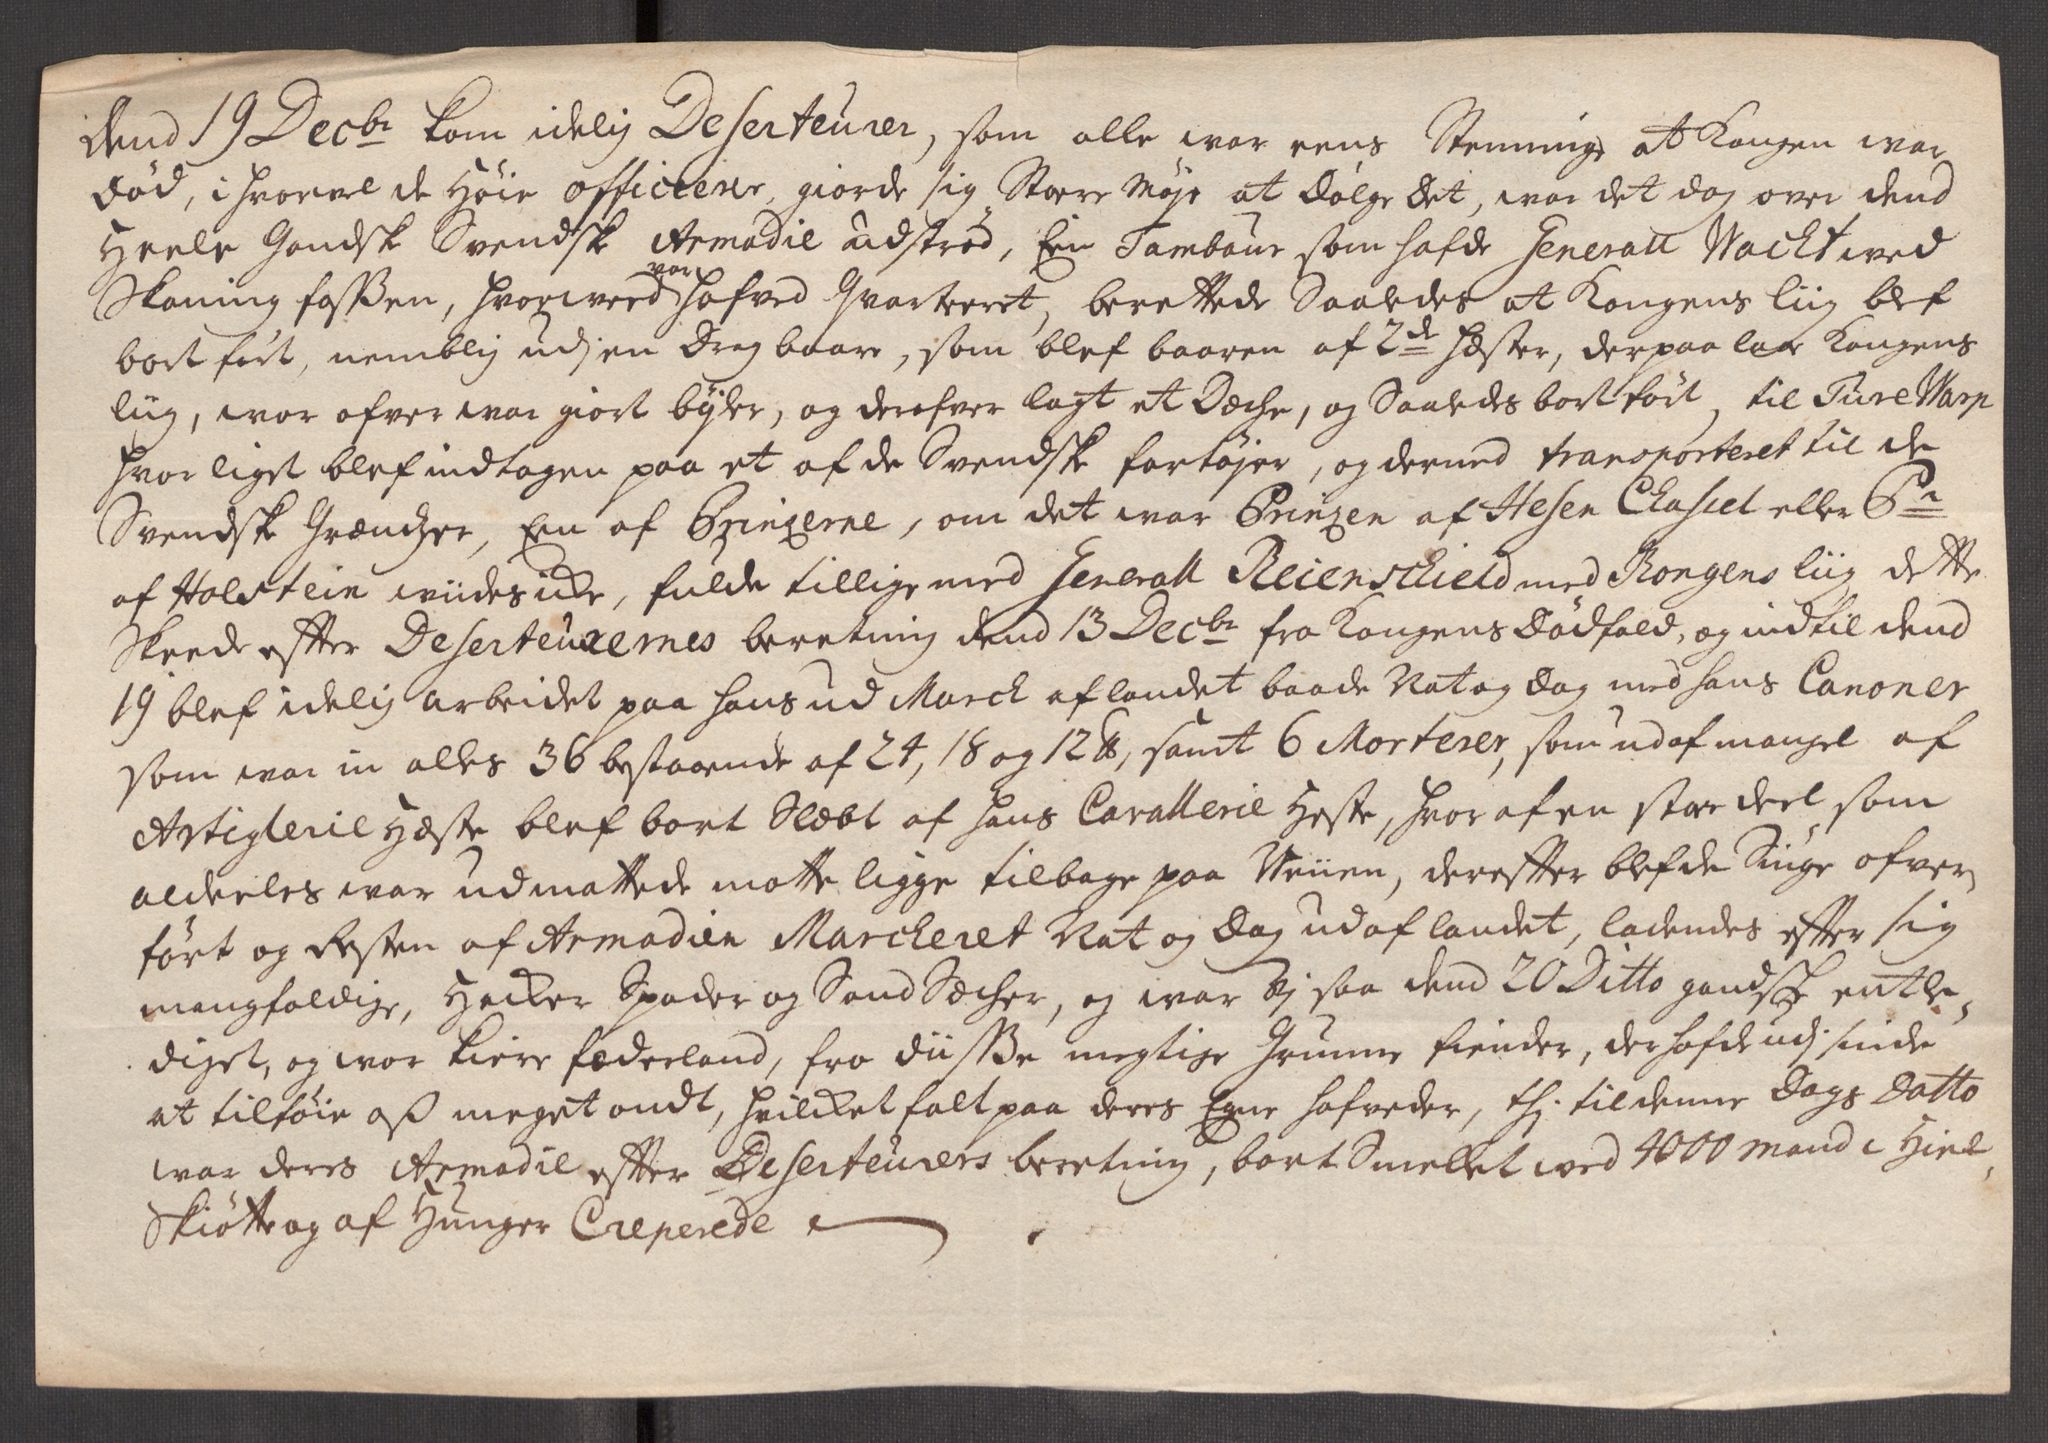 dend 19 Decbr kom idelig Deserteurer, som alle war eens Stemmige at Kongen war
død, ihvorvel de Høie officerer, giorde sig Storre Møje at dølge det, war det dog over dend
Heele Gandske Svendske Armadie udstrød, Een Tambour som hafde Generall Wacht wed
Skaning fossen, hvorweed war hofved Qvarteeret, berettede Saaledes at Kongens liig blef
bort ført, nemblig udj en Drag baare, som blef baaren af 2de Hæster, derpaa laae Kongens
liig, wor ofver war giort bøjler, og derofver lagt et Dæche, og Saaledes bort ført, til Ture Warp
hvor liget blef indtagen paa et af de Svendske fartøjer, og dermed transporteret til de
Svendske Grændzer, Een af Prinzerne, om det war Prinzen af Hesen Chassel eller Pr
af Holstein wiides icke, fulde tillige med Generall Reienschield med Kongens liig dette
Skeede efter Deserteurernes beretning dend 13 Decbr fra Kongens Dødfald, og indtil dend
19 blef idelig arbeidet paa hans ud March af landet baade Nat og dag med hans Canoner
som war in alles 36 bestaaende af 24, 18 og 12 ℔, samt 6 Morterer, som udaf mangel af
Artiglerie Hæste blef bort Slæbt af hans Cavallerie Heste, hvor af en stoer deel som
aldeeles war udmattede motte ligge tilbage paa Veiien, derefter blef de Siuge ofver
ført og Resten af Armadien Marcheret Nat og Dag ud af landet, ladendes efter sig
mangfoldige, Hacker Spader og Sand Sæcher, og war wj saa dend 20 Ditto gandske entle-
diget, og wor kiere fæderland, fra diisse megtige Grumme fiender, der hafde udj sinde
at tilføie oß meget ondt, hvilcket falt paa deres Egne hofveder, thj til denne Dags Datto
war deres Armadie efter Deserteurers beretning, bort Smeltet wed 4000 mand i Hiel-
Skiøtte og af Hunger Creperede